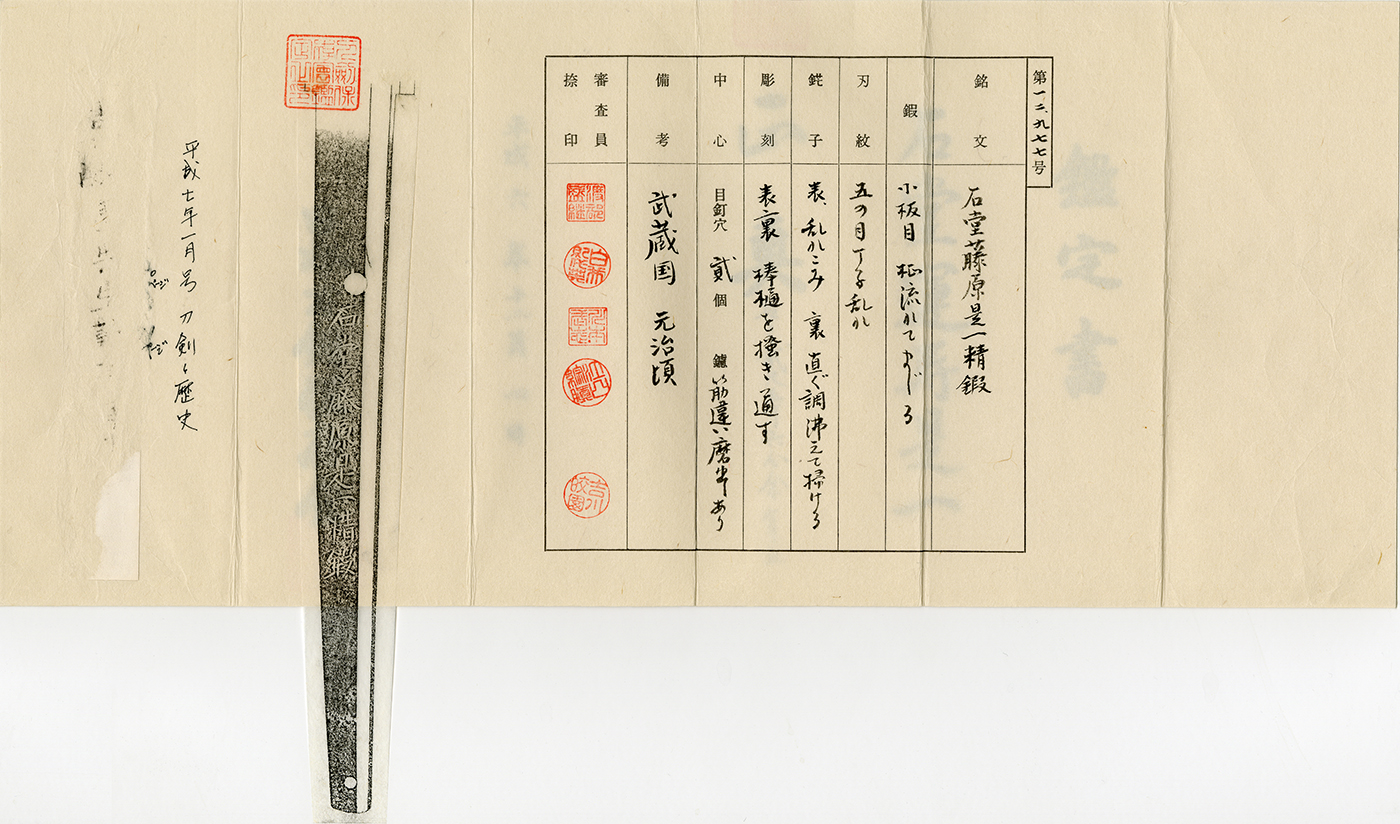 第一二、九七七号
銘文
石堂藤原是一精鍛
鍜
小板目 柾流れてまじる
刃紋
五の目丁子乱れ
鋩子
表、乱れこみ 裏 直ぐ調沸えて掃ける
彫刻
表裏 棒樋を掻き通す
中心
目釘穴 貳 個 鑢 筋違い磨出あり
備考
武蔵国 元治頃
審査員
捺印
石堂藤原是一精鍛
平成七年一月号 刀剣と歴史
ページ